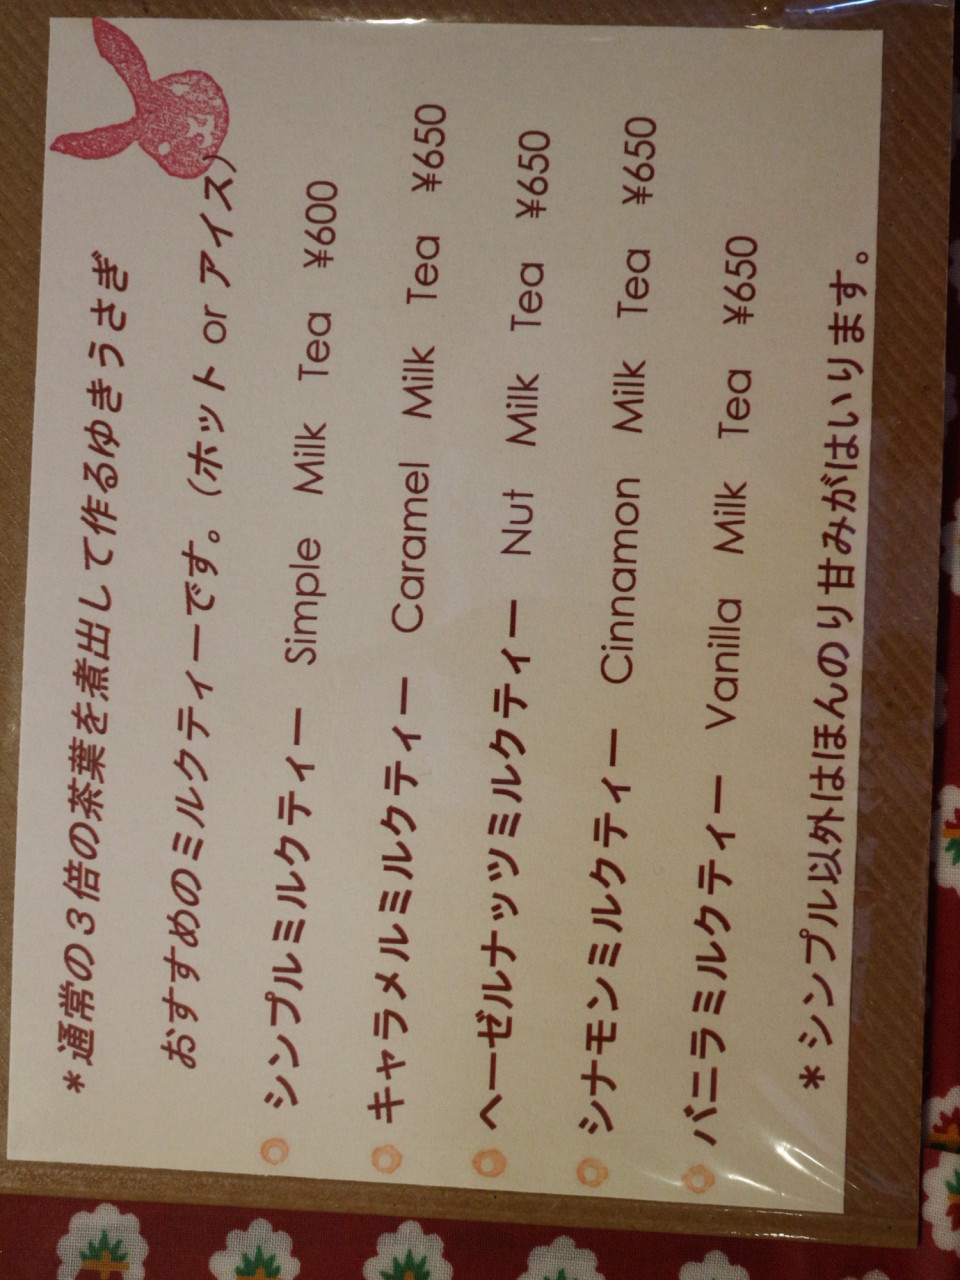 *通常の3倍の茶葉を煮出して作るゆきうさぎ
おすすめのミルクティーです。(ホット or アイス)
シンプルミルクティー Simple Milk Tea ¥600
キャラメルミルクティー Caramel Milk Tea ¥650
ヘーゼルナッツミルクティー Nut Milk Tea ¥650
シナモンミルクティー Cinnamon Milk Tea ¥650
バニラミルクティー Vanilla Milk Tea ¥650
*シンプル以外はほんのり甘みがはいります。